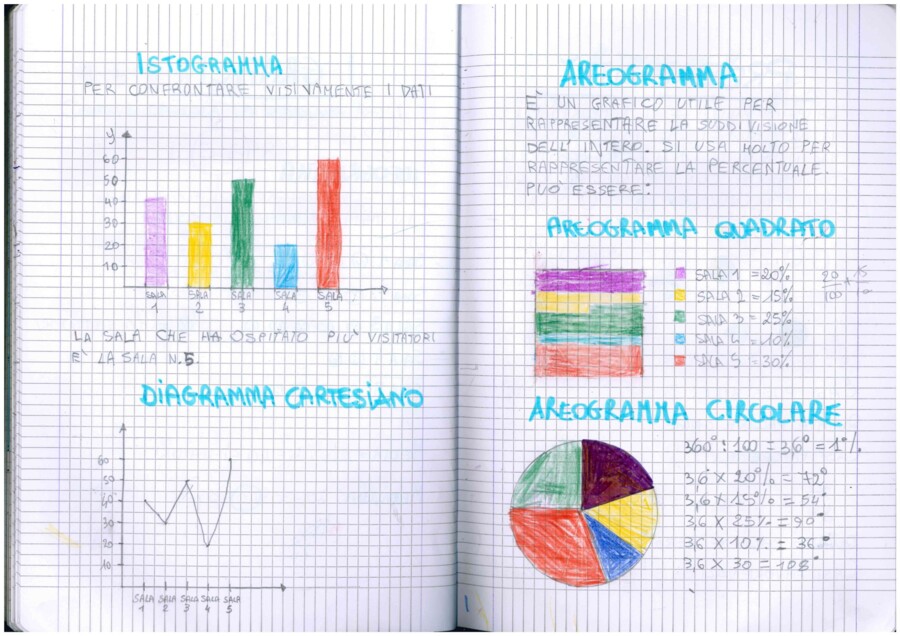 ISTOGRAMMA
PER CONFRONTARE VISIVAMENTE I DATI
y
60
50
40
30
20
10
SALA 1 SALA 2 SALA 3 SALA 4 SALA 5
LA SALA CHE HA OSPITATO PIU' VISITATORI
E' LA SALA N.5.
DIAGRAMMA CARTESIANO
60
50
40
30
20
10
SALA 1 SALA 2 SALA 3 SALA 4 SALA 5
AREOGRAMMA
E' UN GRAFICO UTILE PER
RAPPRESENTARE LA SUDDIVISIONE
DELL' INTERO. SI USA MOLTO PER
RAPPRESENTARE LA PERCENTUALE.
PUO' ESSERE:
AREOGRAMMA QUADRATO
SALA 1 = 20%
SALA 2 = 15%
SALA 3 = 25%
SALA 4 = 10%
SALA 5 = 30%
20/100 +
AREOGRAMMA CIRCOLARE
360° : 100 = 3,6° = 1%
3,6 × 20% = 72°
3,6 × 15% = 54°
3,6 × 25% = 90°
3,6 × 10% = 36°
3,6 × 30 = 108°